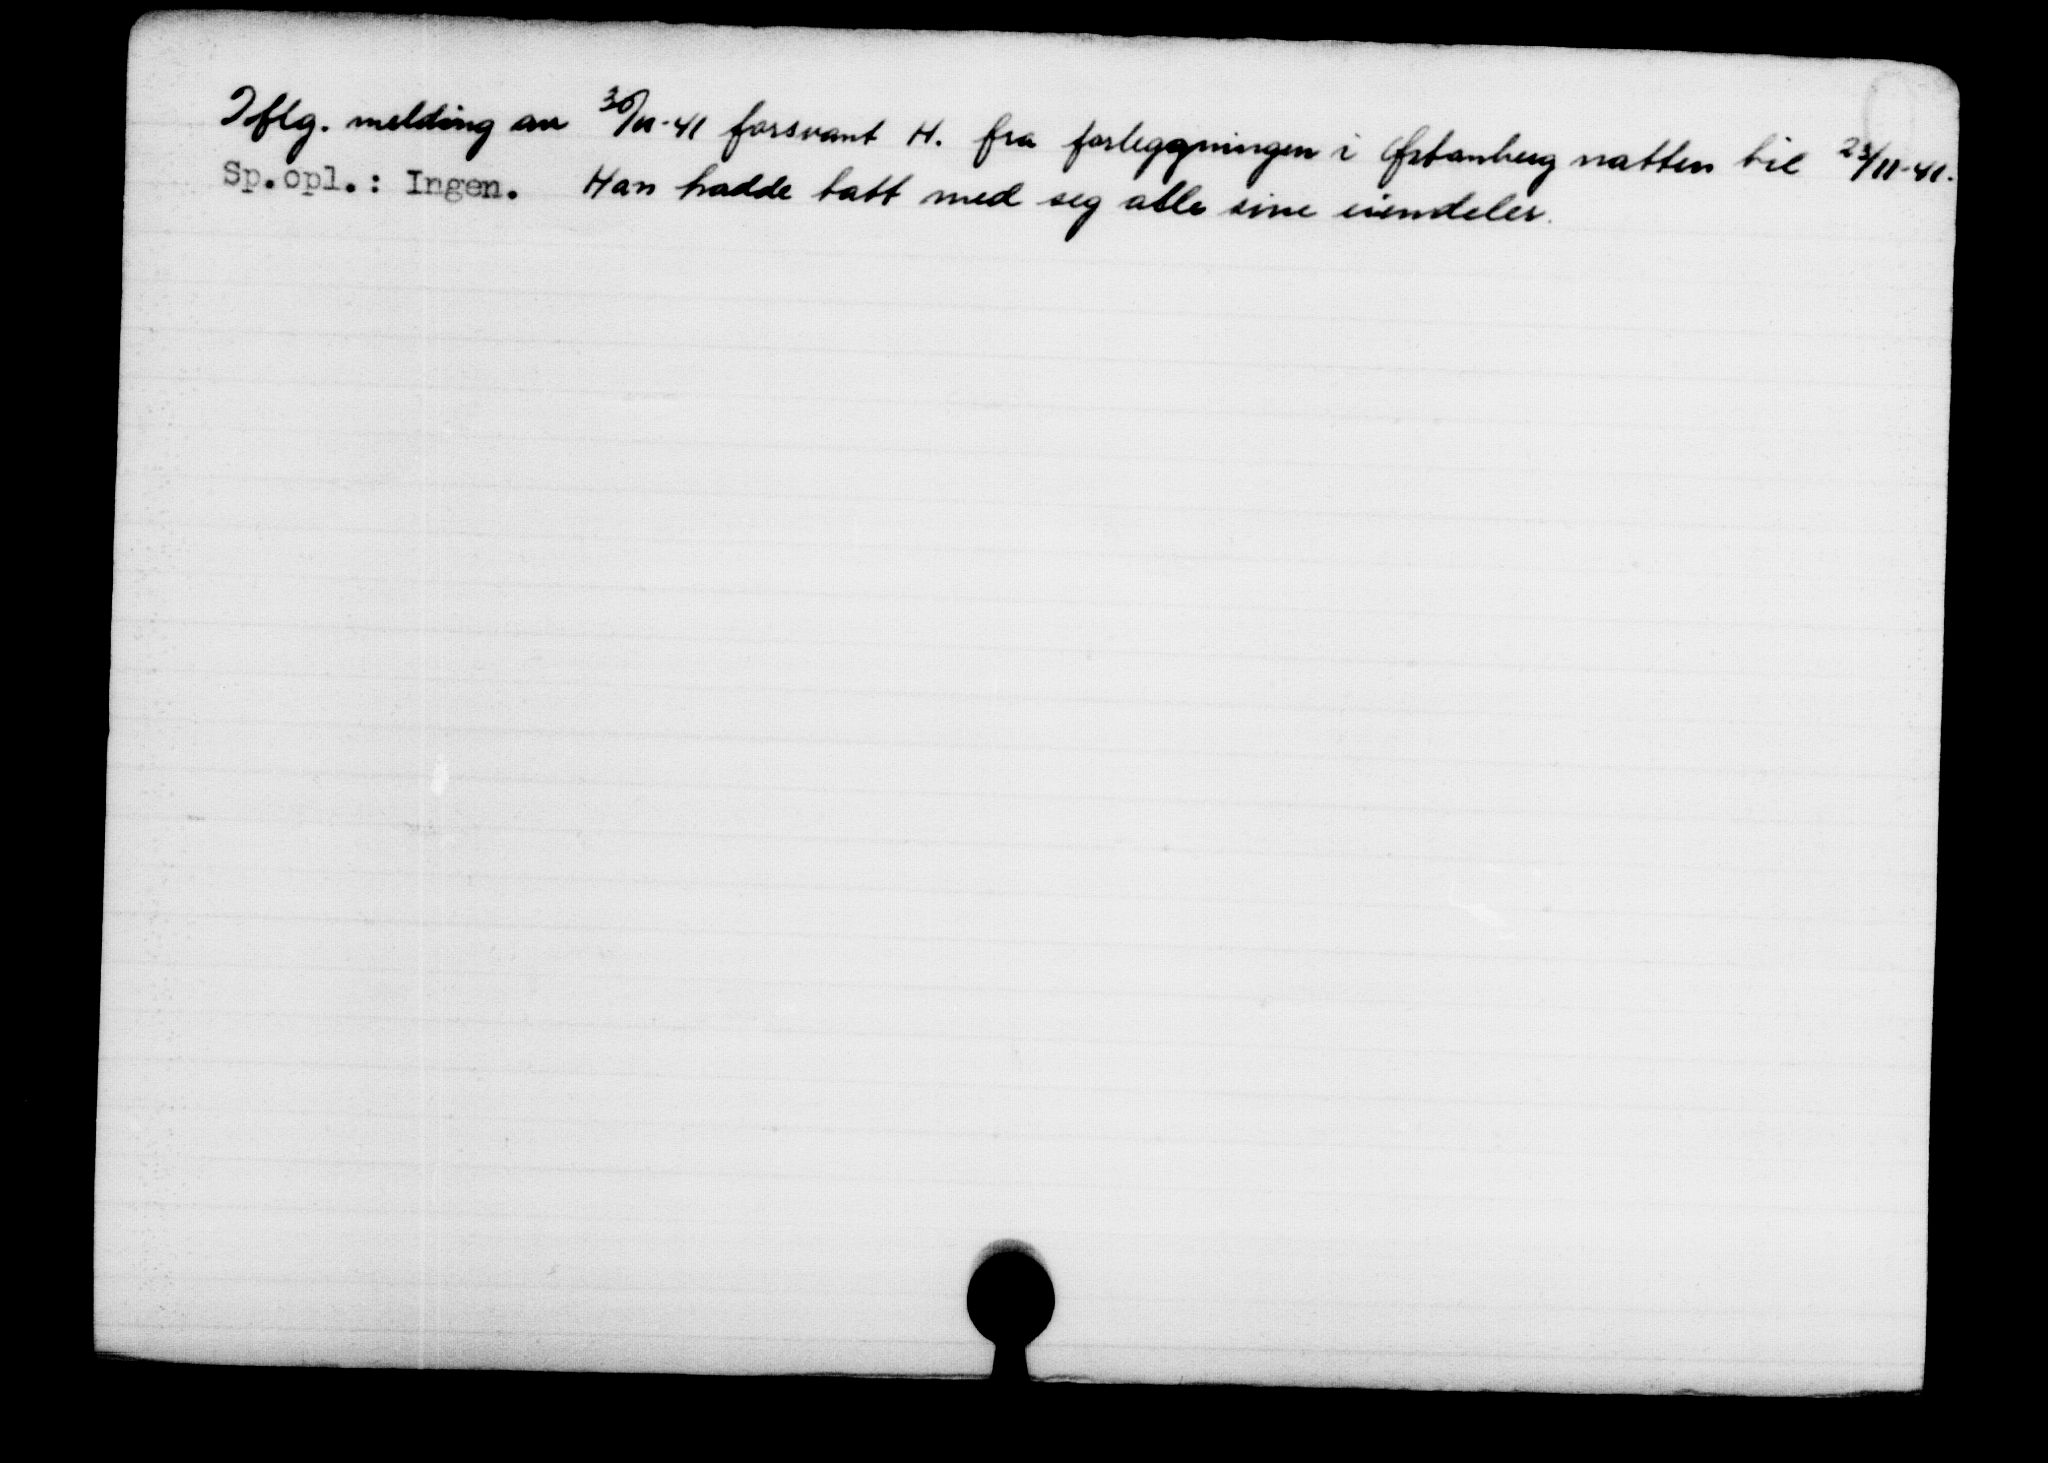 Iflg. melding av 30/11-41 forsvant H. fra forlegningen i Østanberg natten til 23/11-41.
Sp.opl.: Ingen. Han hadde tatt med seg alle sine eiendeler.